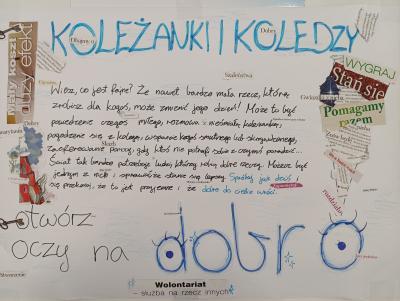 KOLEŻANKI I KOLEDZY
Dobry
WYGRAJ
Stań się
Pomagamy
razem
Wiesz, co jest fajne? Że nawet bardzo mała rzecz, którą
zrobisz dla kogoś, może zmienić jego dzień! Może to być
powiedzenie czegoś miłego, rozmowa z nieśmiałą koleżanką,
pogodzenie się z kolegą, wsparcie kogoś smutnego lub skrzywdzonego,
zaoferowanie pomocy, gdy ktoś nie potrafi sobie z czymś poradzić...
Świat tak bardzo potrzebuje ludzi, którzy robią dobre rzeczy. Możesz być
jednym z nich i sprawić, że stanie się lepszy. Spróbuj jak dziś i
się przekonaj, że to jest przyjemne i że dobro do ciebie wróci.
otwórz
oczy na dobro
Wolontariat
– służba na rzecz innych